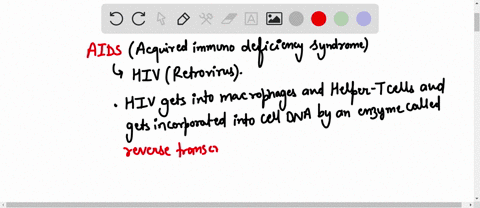 AIDS (Acquired immuno deficiency syndrome)
↳ HIV (Retrovirus).
• HIV gets into macrophages and Helper-T cells and
gets incorporated into cell DNA by an enzyme called
reverse transc